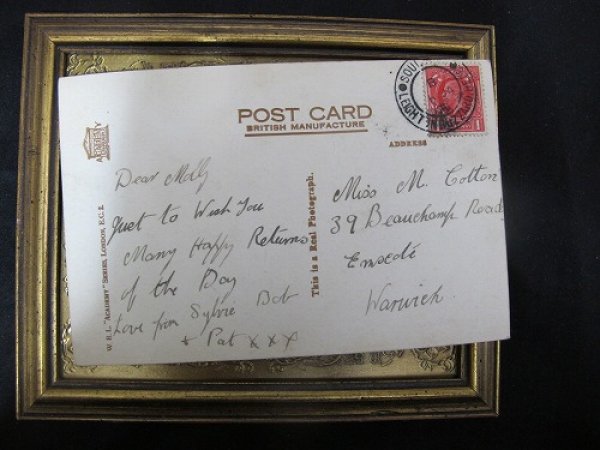 POST CARD
BRITISH MANUFACTURE
ADDRESS
Dear Molly
Just to Wish You
Many Happy Returns
of the Day
Love from Sylvie Bob
+ Pat x x x
This is a Real Photograph.
W. E. L. "ACADEMY" SERIES, LONDON, E.C.2.
Miss M. Cotton
39 Beauchamp Road
Emscote
Warwich
1